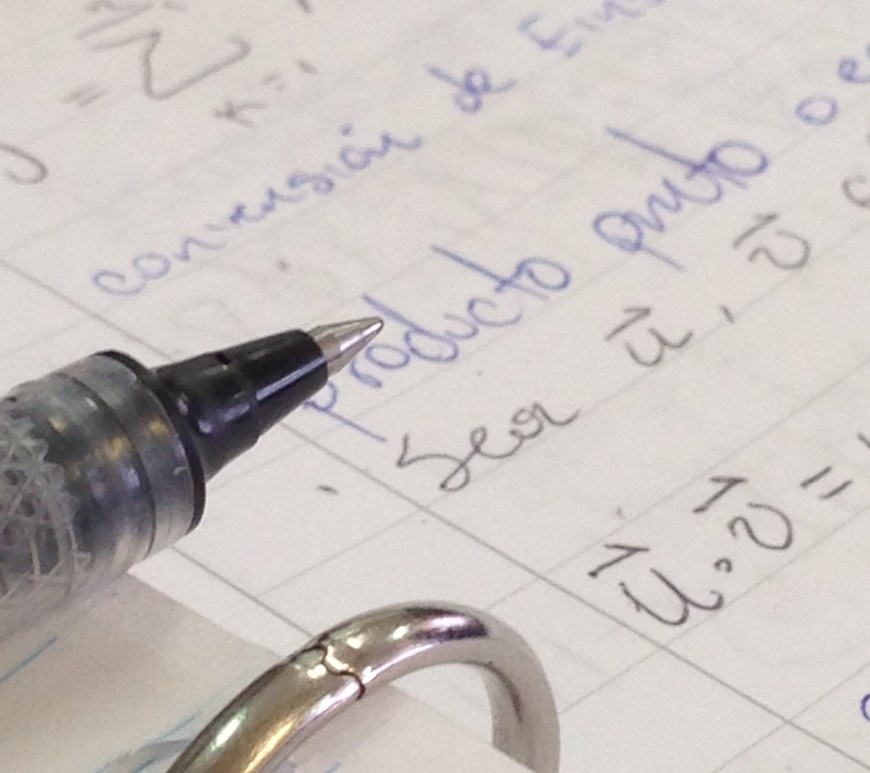 = Σ
k=1
conversión de Eins
producto punto o es
Sea u⃗, v⃗
u⃗·v⃗ =